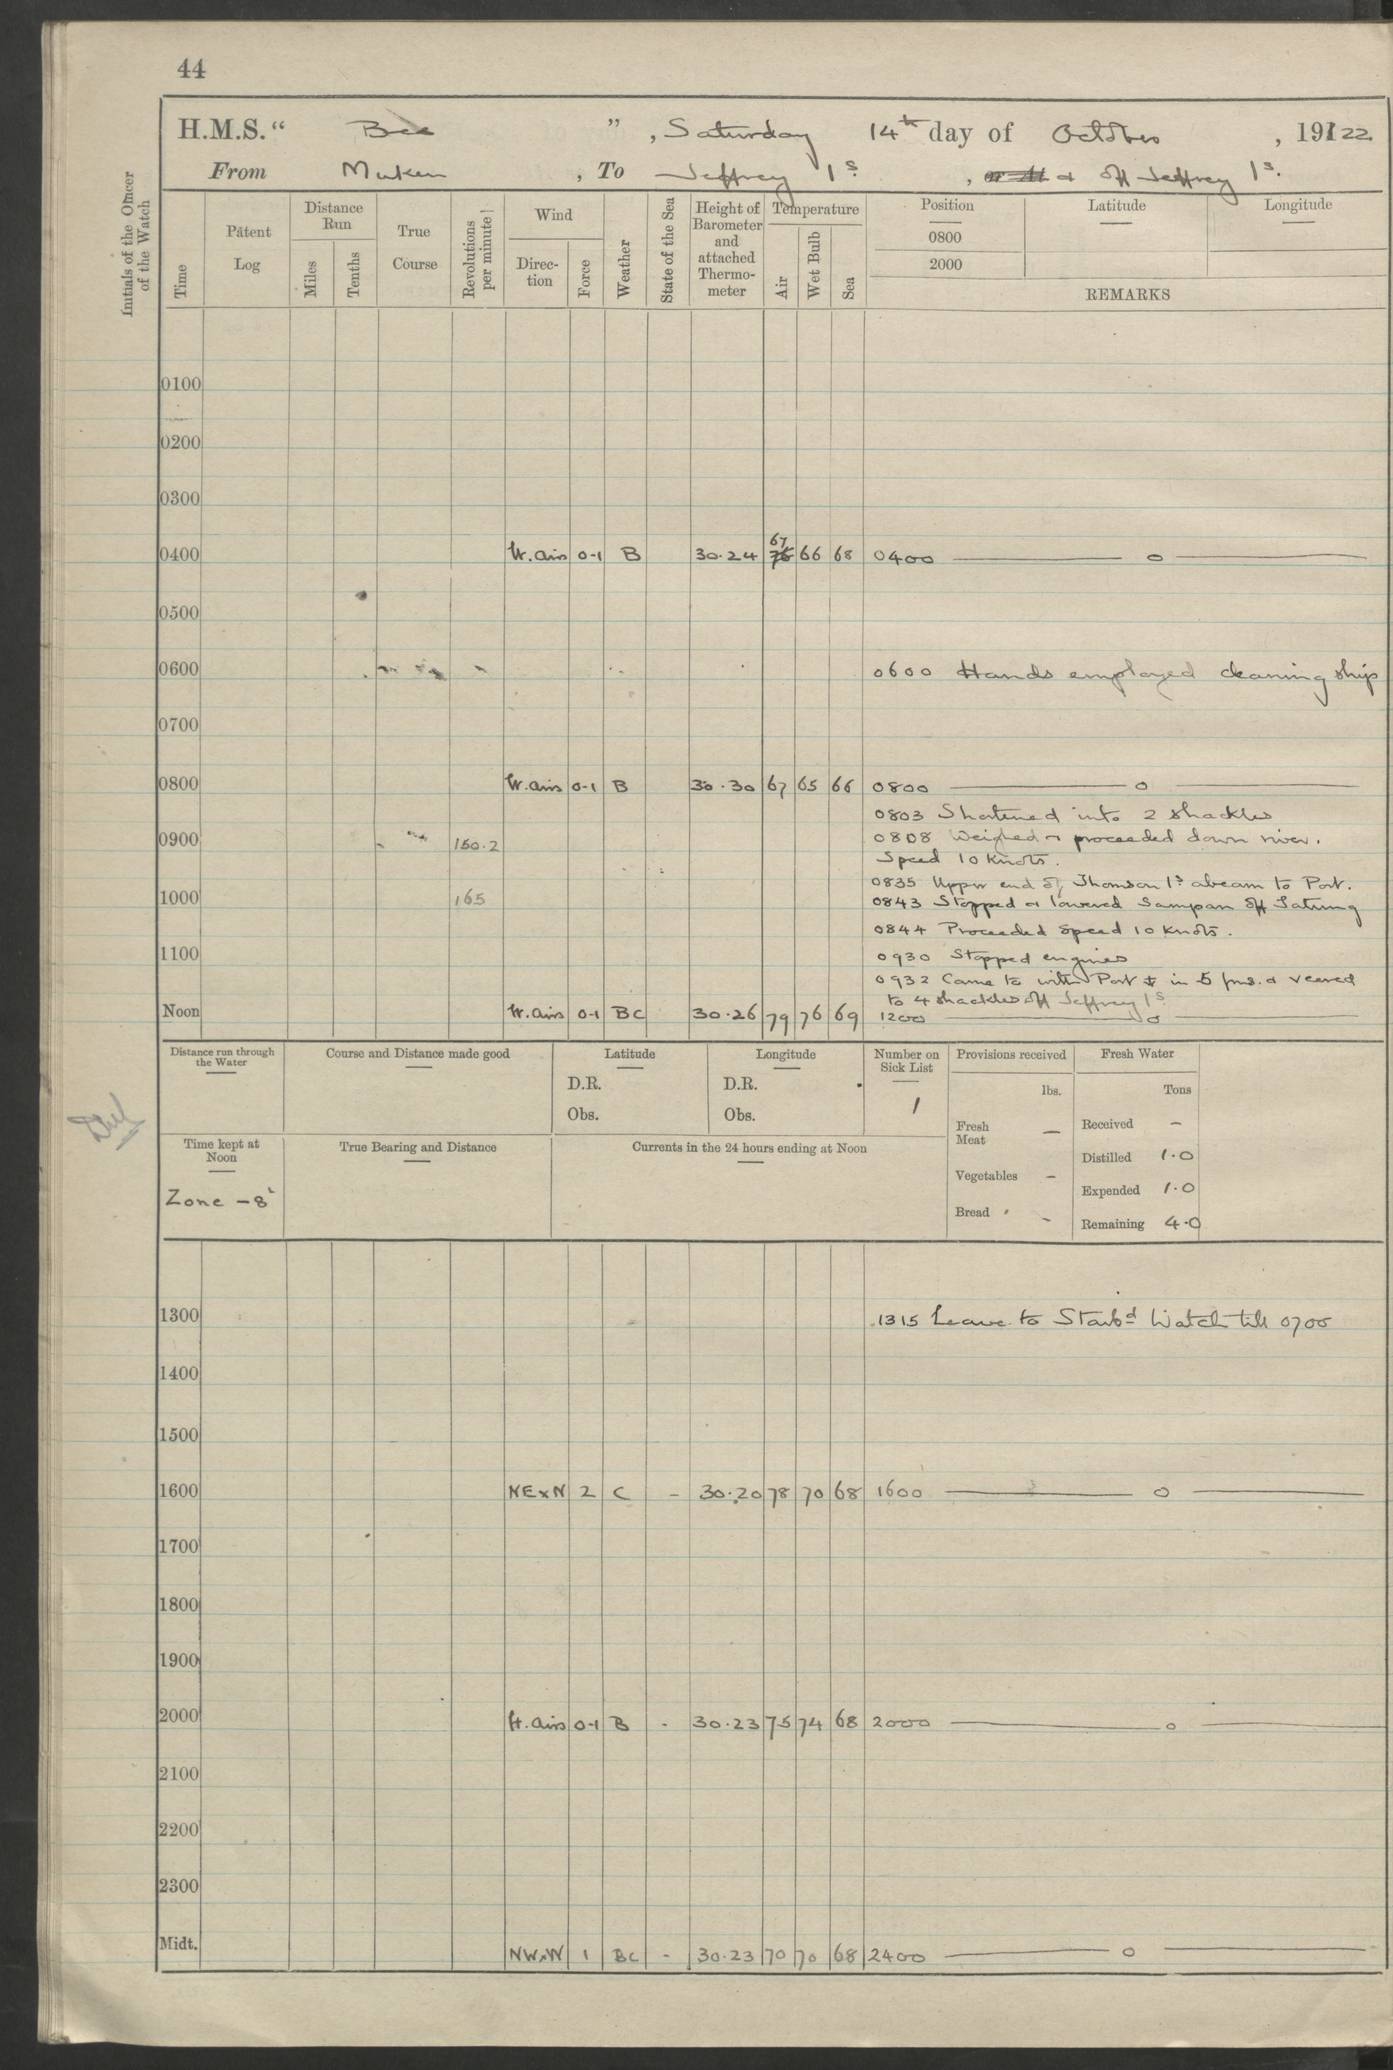 44
H.M.S. “ Bee ”, Saturday 14th day of October, 1922
From Muken, To Jeffrey Is, & off Jeffrey Is.
Initials of the Officer of the Watch
Time
Patent Log
Distance Run
Miles
Tenths
True Course
Revolutions per minute
Wind
Direction
Force
Weather
State of the Sea
Height of Barometer and attached Thermometer
Temperature
Air
Wet Bulb
Sea
Position
0800
2000
Latitude
Longitude
REMARKS
0100
0200
0300
0400 lt. airs 0-1 B 30.24 67 66 68 0400 — o —
0500
0600 0600 Hands employed cleaning ship
0700
0800 lt. airs 0-1 B 30.30 67 65 66 0800 — o —
0803 Shortened into 2 shackles
0900 150.2 0808 Weighed & proceeded down river.
Speed 10 knots.
0835 Upper end of Thomson Is abeam to Port.
1000 165 0843 Stopped & lowered Sampan off Tatung
0844 Proceeded Speed 10 knots.
1100 0930 Stopped engines
0932 Came to with Port ⚓ in 5 fms. & veered
to 4 shackles off Jeffrey Is
Noon lt. airs 0-1 BC 30.26 79 76 69 1200 — o —
Distance run through the Water
Course and Distance made good
Latitude
D.R.
Obs.
Longitude
D.R.
Obs.
Number on Sick List
1
Provisions received
lbs.
Fresh Meat —
Vegetables -
Bread -
Fresh Water
Tons
Received -
Distilled 1.0
Expended 1.0
Remaining 4.0
Time kept at Noon
Zone -8
True Bearing and Distance
Currents in the 24 hours ending at Noon
1300 1315 Leave to Starbd Watch till 0700
1400
1500
1600 NExN 2 C - 30.20 78 70 68 1600 — o —
1700
1800
1900
2000 lt. airs 0-1 B - 30.23 75 74 68 2000 — o —
2100
2200
2300
Midt. NWxW 1 BC - 30.23 70 70 68 2400 — o —